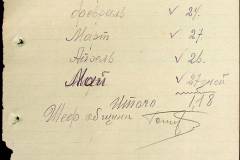 февраль ✓ 24.
Март ✓ 27.
Апрель ✓ 26.
Май ✓ 27 дней
Итого 118
Шеф общины